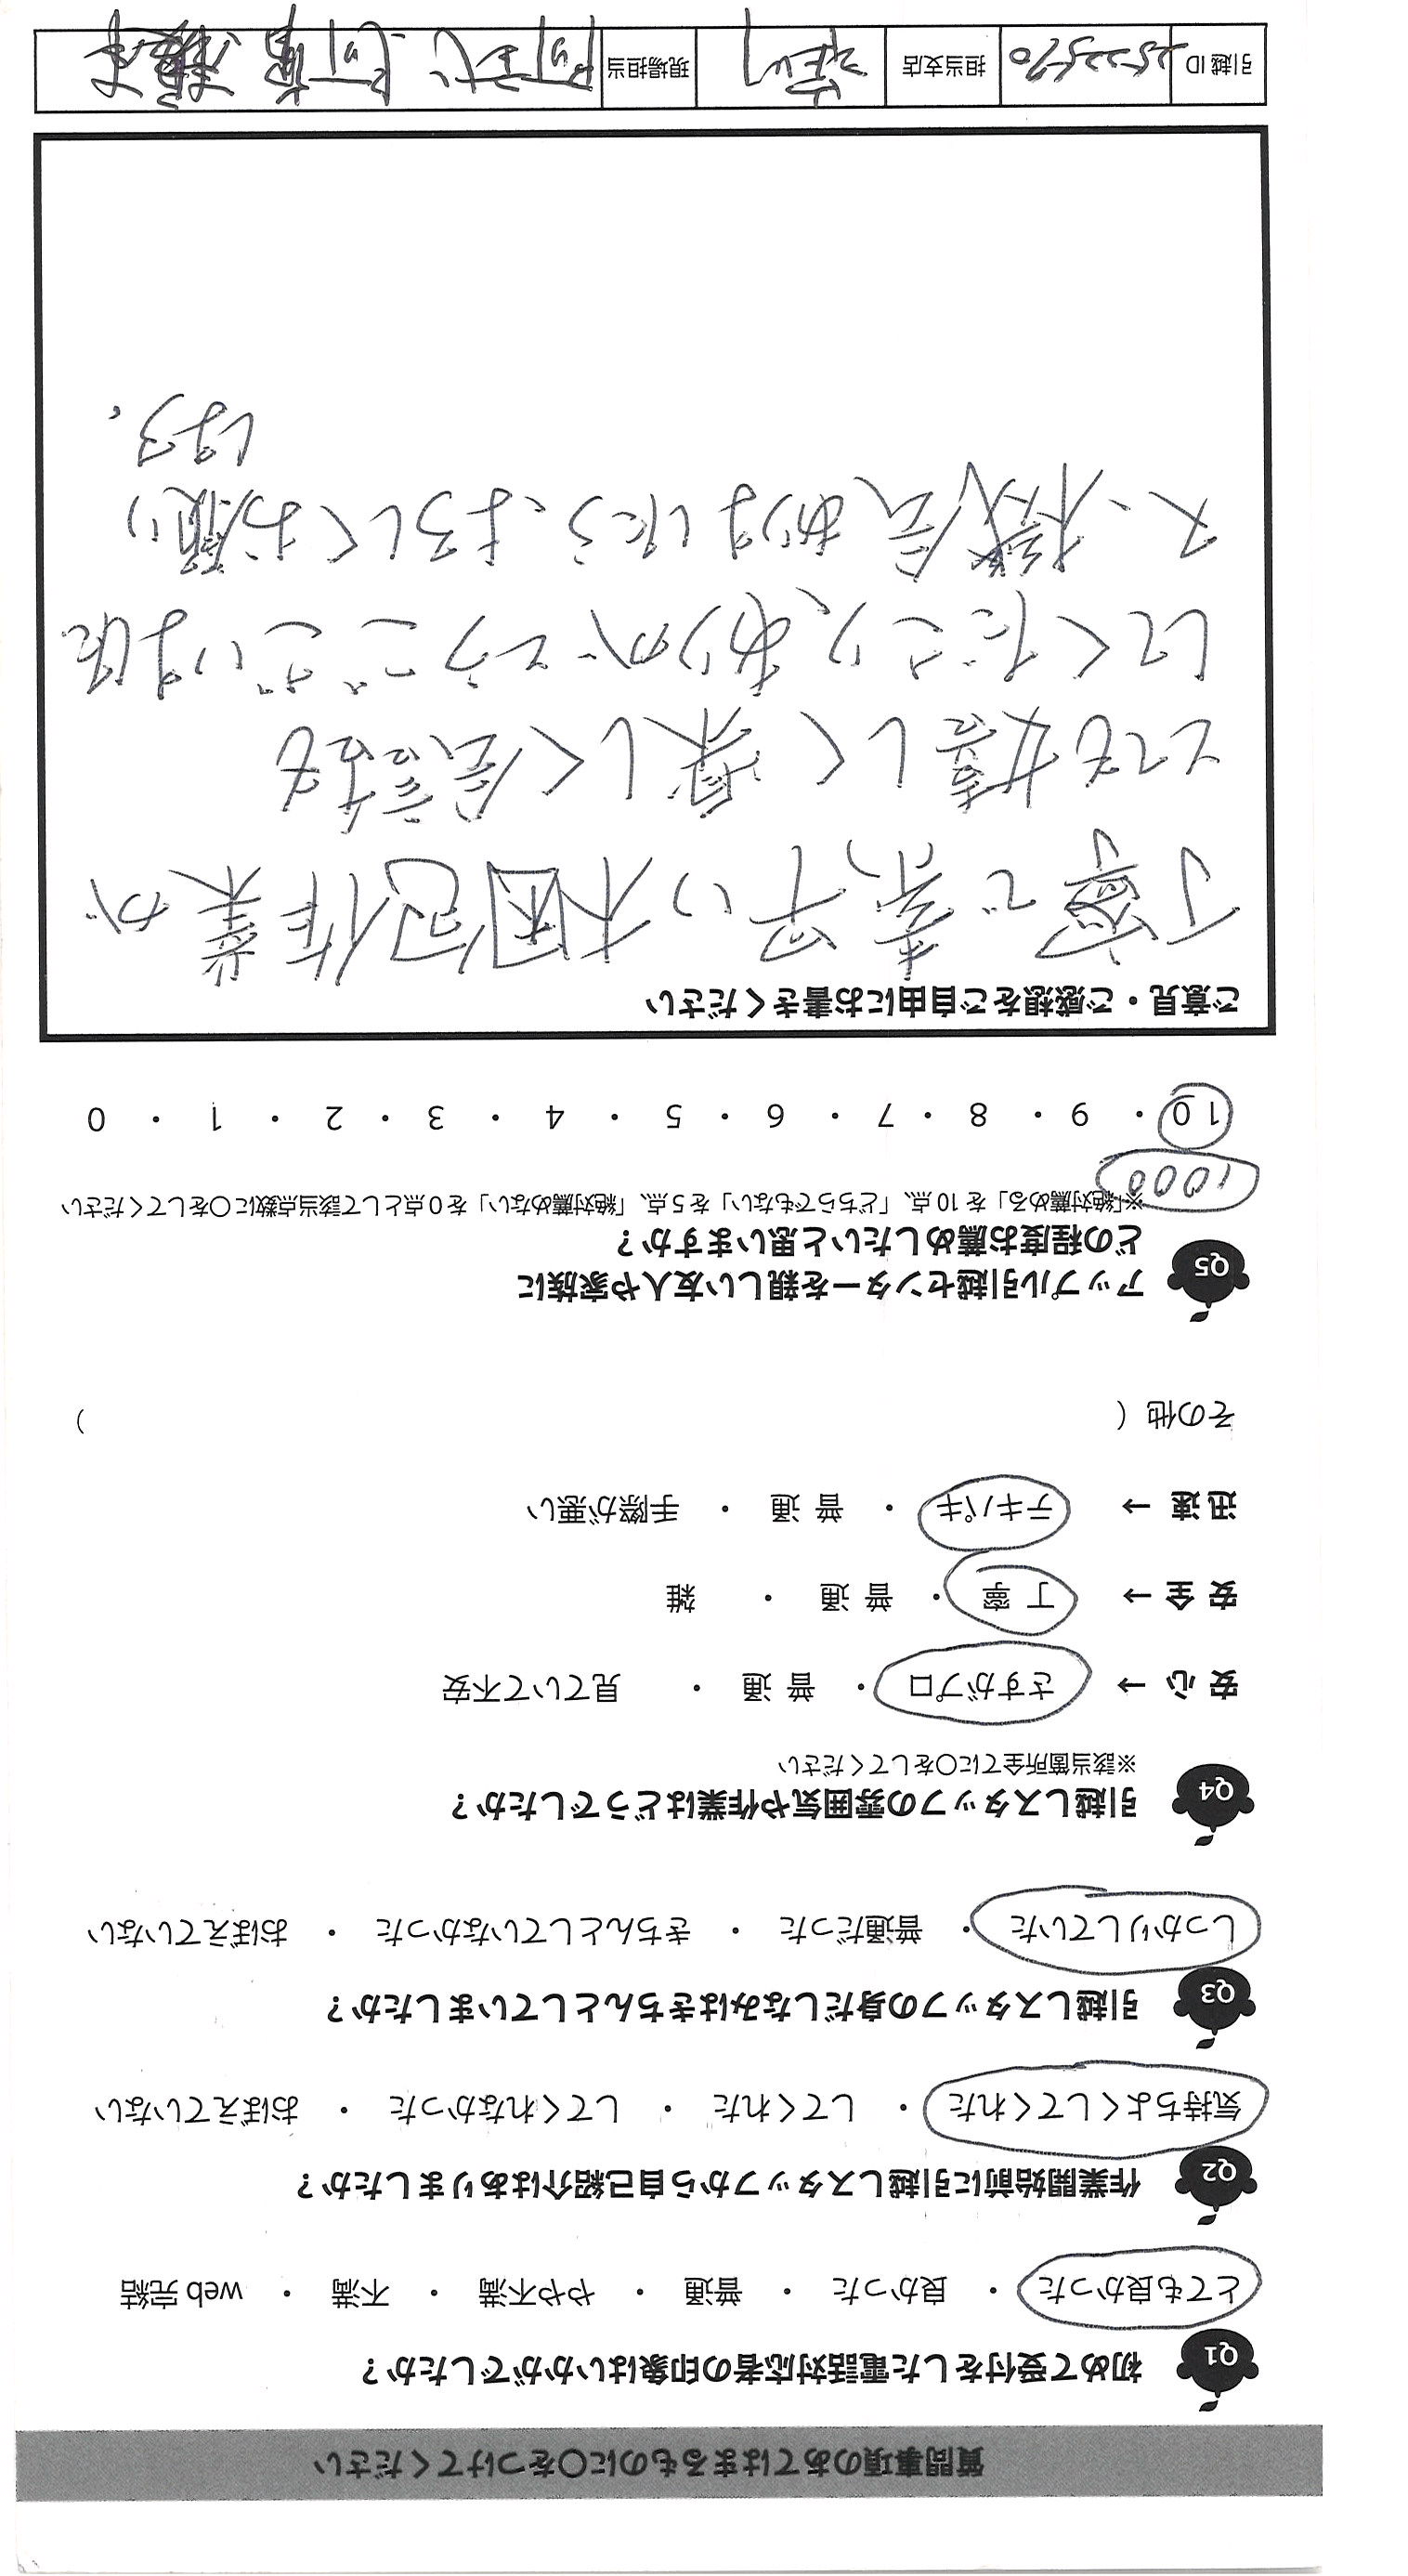 質問事項のあてはまるものに○をつけてください
Q1 初めて受付をした電話対応者の印象はいかがでしたか？
とても良かった ・ 良かった ・ 普通 ・ やや不満 ・ 不満 ・ web 完結
Q2 作業開始前に引越しスタッフから自己紹介はありましたか？
気持ちよくしてくれた ・ してくれた ・ してくれなかった ・ おぼえていない
Q3 引越しスタッフの身だしなみはきちんとしていましたか？
しっかりしていた ・ 普通だった ・ きちんとしていなかった ・ おぼえていない
Q4 引越しスタッフの雰囲気や作業はどうでしたか？
※該当箇所全てに○をしてください
安心 → さすがプロ ・ 普通 ・ 見ていて不安
安全 → 丁寧 ・ 普通 ・ 雑
迅速 → テキパキ ・ 普通 ・ 手際が悪い
その他（ ）
Q5 アップル引越センターを親しい友人や家族に
どの程度お薦めしたいと思いますか？
※「絶対薦める」を 10 点、「どちらでもない」を 5 点、「絶対薦めない」を 0 点として該当点数に○をしてください
1000
10 ・ 9 ・ 8 ・ 7 ・ 6 ・ 5 ・ 4 ・ 3 ・ 2 ・ 1 ・ 0
ご意見・ご感想をご自由にお書きください
丁寧で素早い梱包作業が
とても嬉しく楽しく会話も
してくださり、ありがとうございました
又、機会ありましたら、よろしくお願い
します.
引越 ID 2522590 担当支店 現場担当